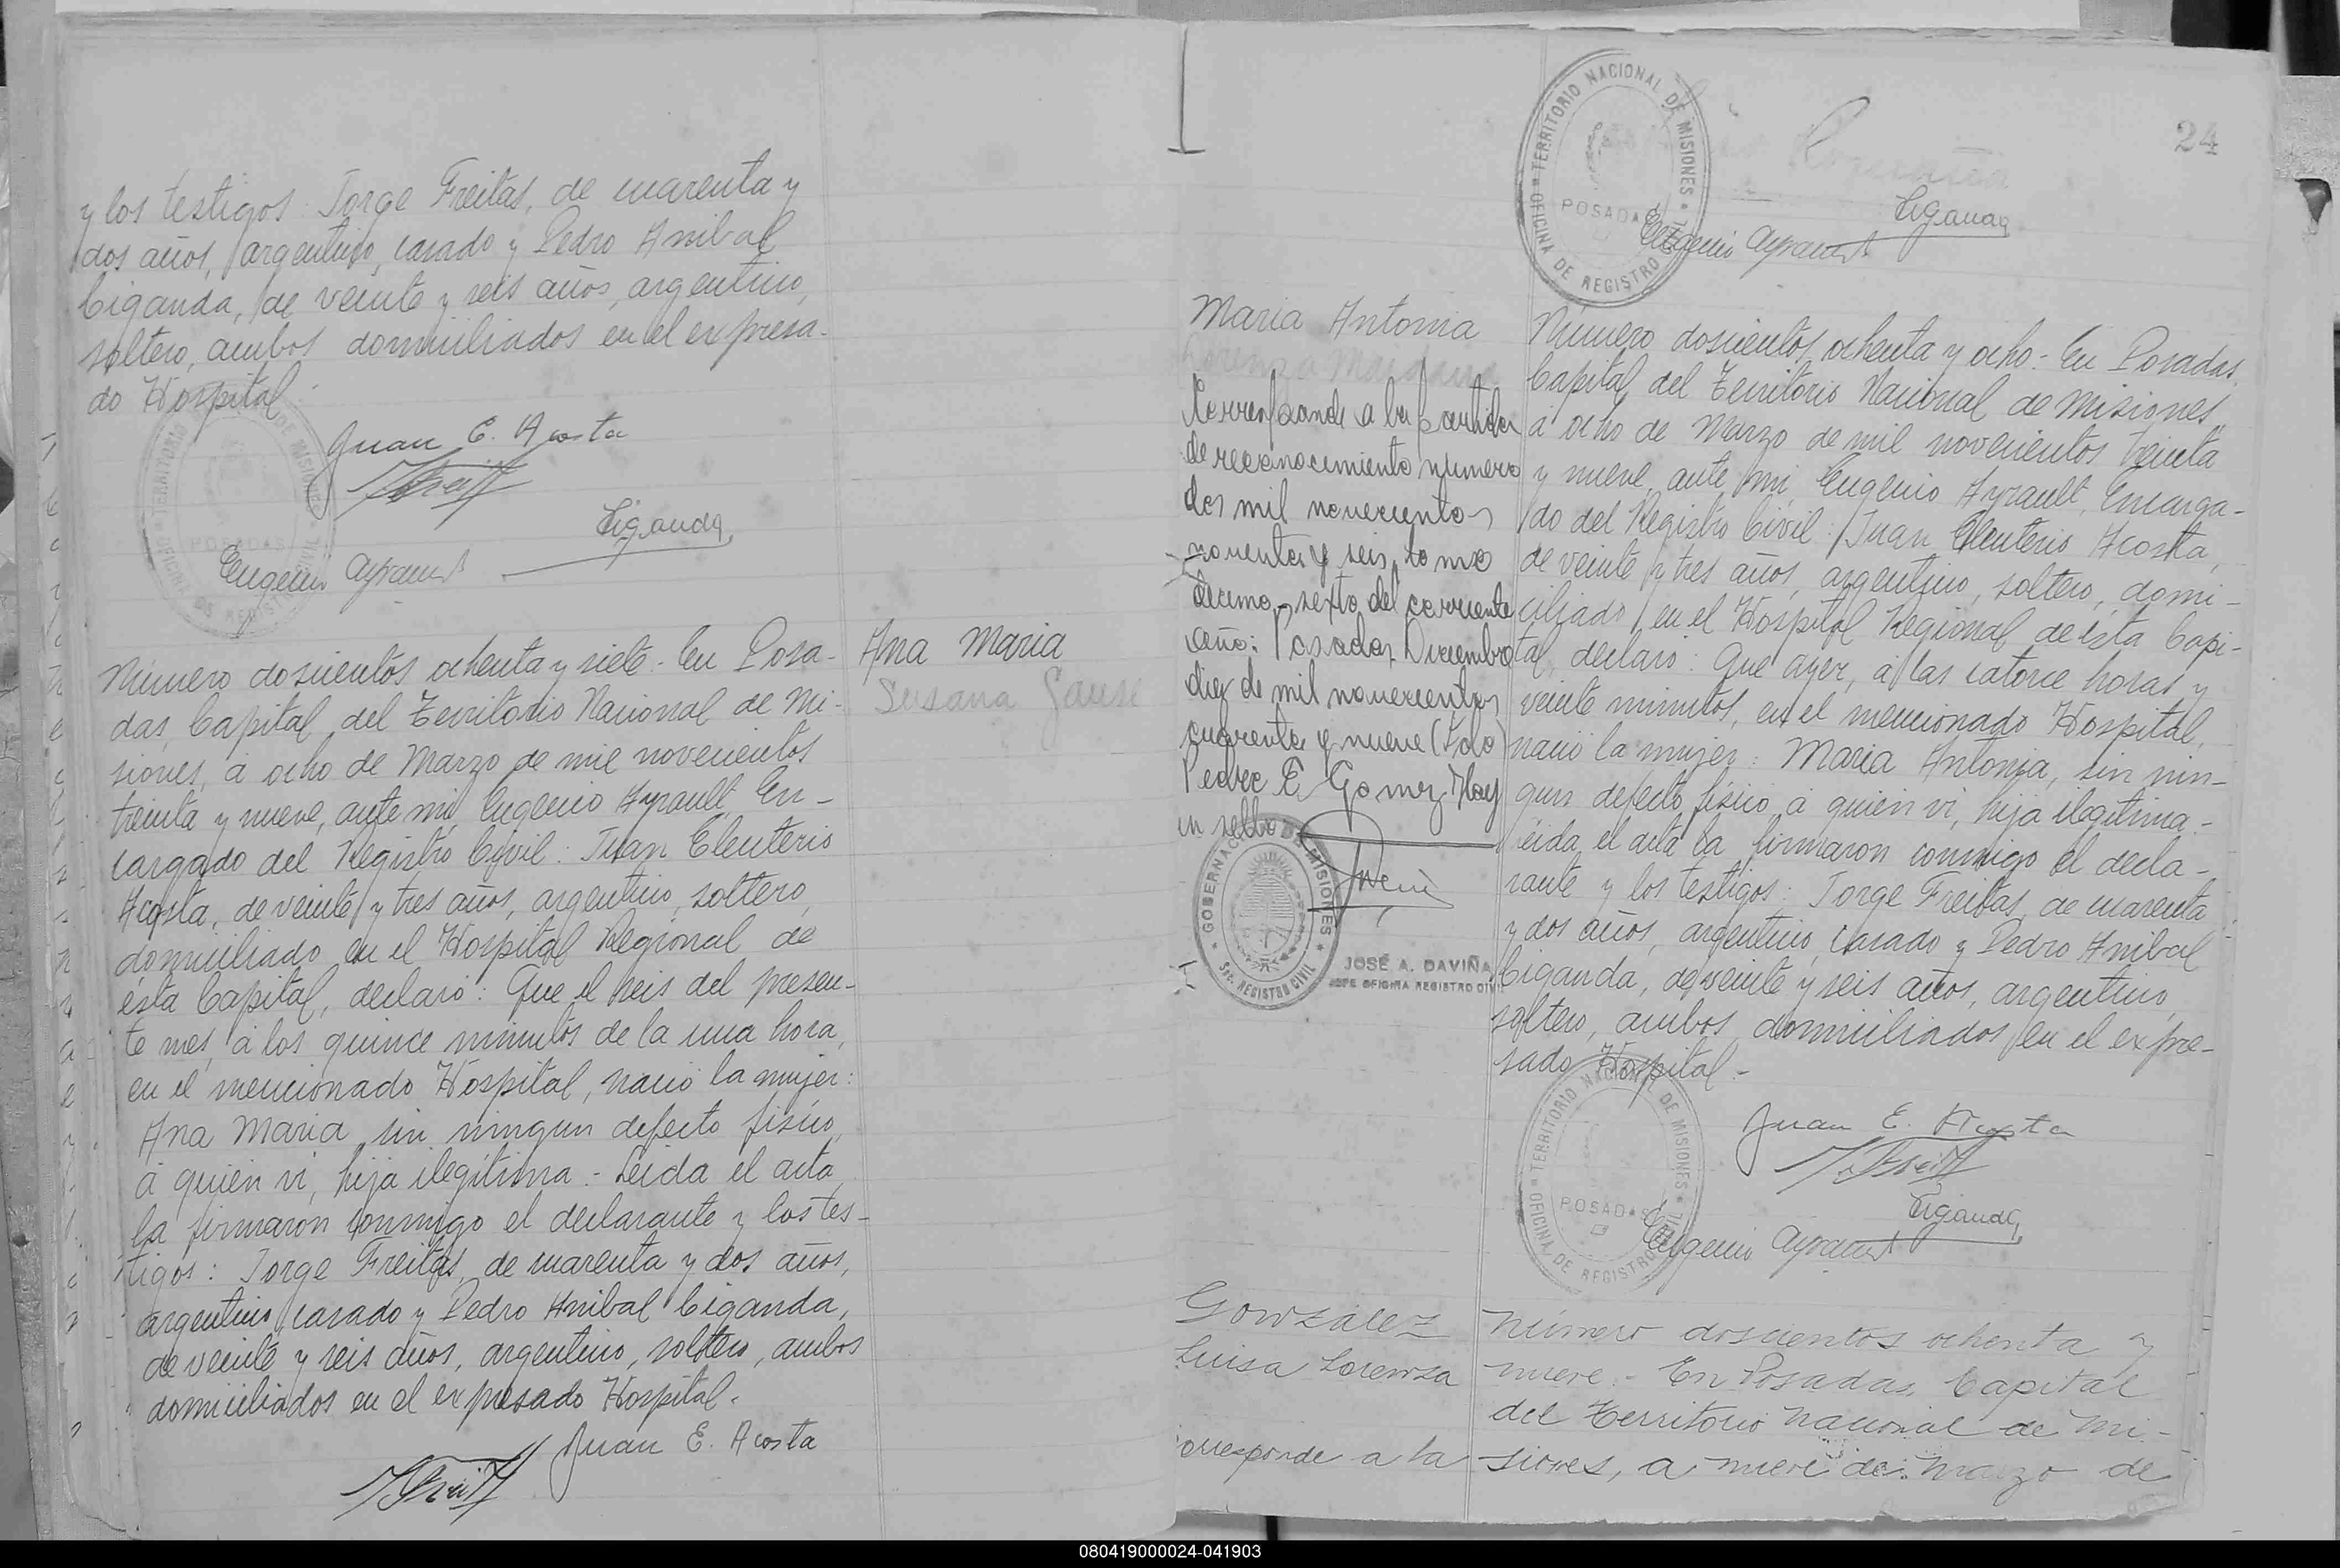 y los testigos: Jorge Freitas, de cuarenta y
dos años, argentino, casado y Pedro Anibal
Ciganda, de veinte y seis años, argentino,
soltero, ambos domiciliados en el expresa-
do Hospital.
Juan E. Acosta
Ciganda
Eugenio Ayrault
Número doscientos ochenta y siete.- En Posa-
das, Capital del Territorio Nacional de Mi-
siones, á ocho de Marzo de mil novecientos
treinta y nueve, ante mi, Eugenio Ayrault, En-
cargado del Registro Civil: Juan Eleuterio
Acosta, de veinte y tres años, argentino, soltero,
domiciliado en el Hospital Regional de
ésta Capital, declaró: Que el seis del presen-
te mes, á los quince minutos de la una hora,
en el mencionado Hospital, nació la mujer:
Ana Maria, sin ningun defecto fisico,
á quién vi, hija ilegítima.- Leida el acta
la firmaron conmigo el declarante y los tes-
tigos: Jorge Freitas, de cuarenta y dos años,
argentino, casado y Pedro Anibal Ciganda,
de veinte y seis años, argentino, soltero, ambos
domiciliados en el expresado Hospital.
Juan E. Acosta
Ana Maria
Susana
24
TERRITORIO NACIONAL DE MISIONES
POSADAS
OFICINA DE REGISTRO CIVIL
Ciganda
Eugenio Ayrault
Maria Antonia
Corresponde a la partida
de reconocimiento número
dos mil novecientos
noventa y seis, tomo
décimo sexto del corriente
año: Posadas, Diciembre
diez de mil novecientos
cuarenta y nueve (fdo)
Pedro E. Gomez. Hay
un sello
GOBERNACION DE MISIONES
Sec. REGISTRO CIVIL
JOSÉ A. DAVIÑA
JEFE OFICINA REGISTRO CIVIL
Número doscientos ochenta y ocho.- En Posadas,
Capital del Territorio Nacional de Misiones,
á ocho de Marzo de mil novecientos treinta
y nueve, ante mi, Eugenio Ayrault, Encarga-
do del Registro Civil: Juan Eleuterio Acosta,
de veinte y tres años, argentino, soltero, domi-
ciliado en el Hospital Regional de ésta Capi-
tal, declaró: Que ayer, á las catorce horas y
veinte minutos, en el mencionado Hospital,
nació la mujer: Maria Antonia, sin nin-
gun defecto fisico, á quién vi, hija ilegítima.-
Leida el acta la firmaron conmigo el decla-
rante y los testigos: Jorge Freitas, de cuarenta
y dos años, argentino, casado y Pedro Anibal
Ciganda, de veinte y seis años, argentino,
soltero, ambos domiciliados en el expre-
sado Hospital.-
Juan E. Acosta
Ciganda
TERRITORIO NACIONAL DE MISIONES
POSADAS
OFICINA DE REGISTRO CIVIL
Eugenio Ayrault
Gonzalez
Luisa Lorenza
Corresponde a la
Número doscientos ochenta y
nueve.- En Posadas, Capital
del Territorio Nacional de Mi-
siones, a nueve de Marzo de
080419000024-041903